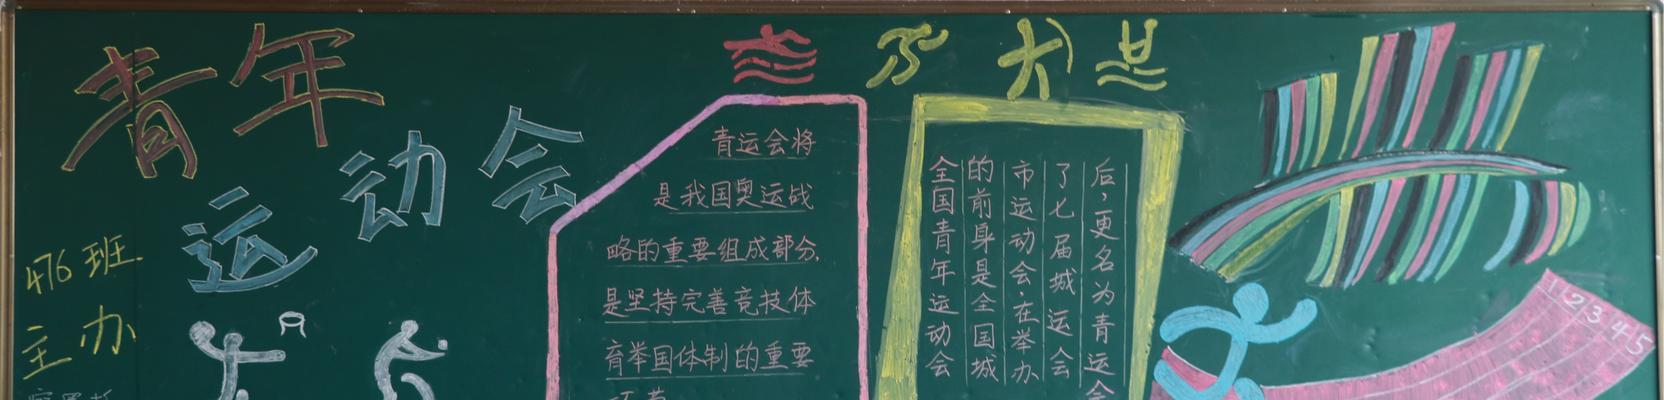 青年
运动会
476班
主办
青运会将
是我国奥运战
略的重要组成部分,
是坚持完善竞技体
育举国体制的重要
后,更名为青运会
了七届城运会
市运动会.在举办
的前身是全国城
全国青年运动会
1 2 3 4 5